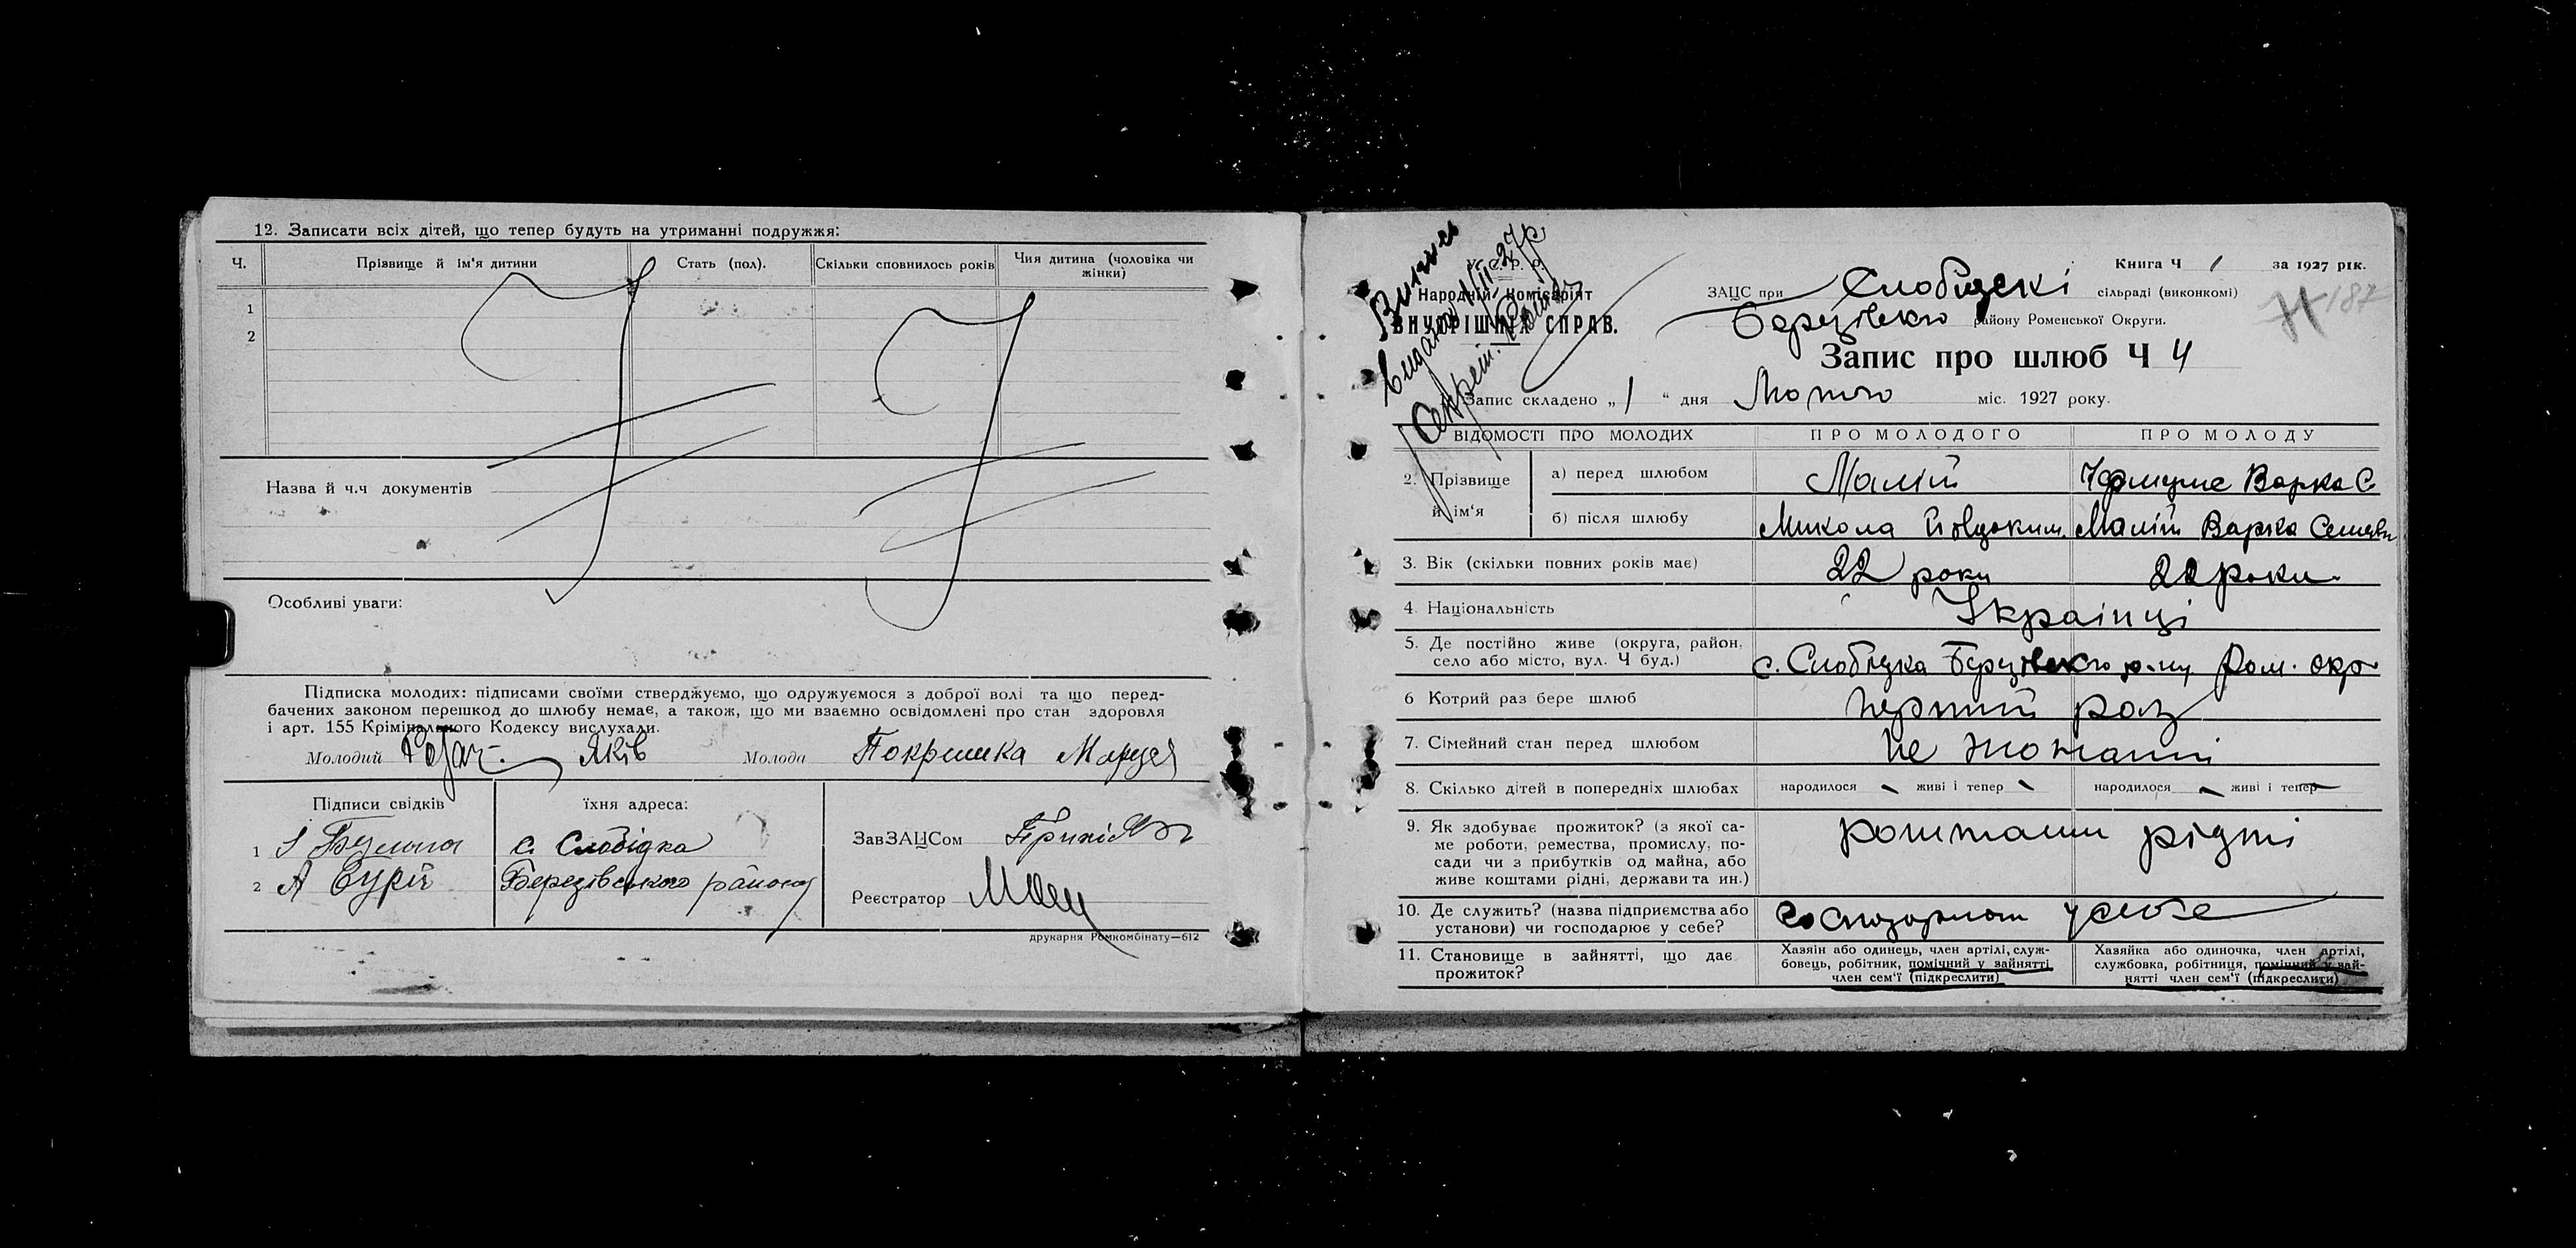 12. Записати всіх дітей, що тепер будуть на утриманні подружжя:
Ч.
Прізвище й ім'я дитини
Стать (пол).
Скільки сповнилось років
Чия дитина (чоловіка чи жінки)
1
2
Назва й ч.ч документів
Особливі уваги:
Підписка молодих: підписами своїми стверджуємо, що одружуємося з доброї волі та що перед-
бачених законом перешкод до шлюбу немає, а також, що ми взаємно освідомлені про стан здоровля
і арт. 155 Крімінального Кодексу вислухали.
Молодий Яків Молода Покришка
Підписи свідків
їхня адреса:
1 с. Слобідка
2 А Бурій Березівського району
ЗавЗАЦСом
Реєстратор
друкарня Ромкомбінату—612
Випись
видано 1/II-27р
У. С. Р. Р.
Народній Комісаріят
ВНУТРІШНІХ СПРАВ.
Книга Ч 1 за 1927 рік.
ЗАЦС при Слобідскі сільраді (виконкомі)
187
Березівского району Роменської Округи.
Запис про шлюб Ч 4
Запис складено „1“ дня Лютого міс. 1927 року.
ВІДОМОСТІ ПРО МОЛОДИХ
ПРО МОЛОДОГО
ПРО МОЛОДУ
2. Прізвище й ім'я
а) перед шлюбом
Малій
Варка С.
б) після шлюбу
Микола Йовдоким.
Малій Варка
3. Вік (скільки повних років має)
22 роки
22 роки
4. Національність
Українці
5. Де постійно живе (округа, район,
село або місто, вул. Ч буд.)
с. Слобідка Березівского р-ну Ром. окр
6 Котрий раз бере шлюб
перший раз
7. Сімейний стан перед шлюбом
не жонаті
8. Скілько дітей в попередніх шлюбах
народилося - живі і тепер -
народилося - живі і тепер -
9. Як здобуває прожиток? (з якої са-
ме роботи, ремества, промислу, по-
сади чи з прибутків од майна, або
живе коштами рідні, держави та ин.)
коштами рідні
10. Де служить? (назва підприємства або
установи) чи господарює у себе?
у себе
11. Становище в зайнятті, що дає
прожиток?
Хазяїн або одинець, член артілі, служ-
бовець, робітник, помічний у зайнятті
член сем'ї (підкреслити)
Хазяйка або одиночка, член артілі,
службовка, робітниця, помічний у зай-
нятті член сем'ї (підкреслити)